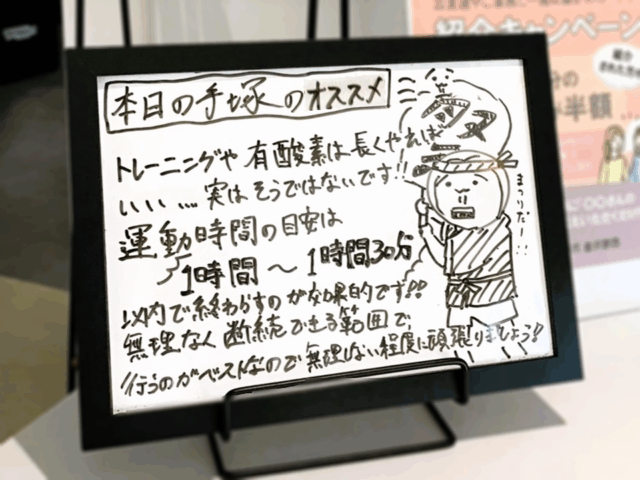 本日の手塚のオススメ
トレーニングや有酸素は長くやれば
いい、、、実はそうではないです!!
運動時間の目安は
1時間〜1時間30分
以内で終わらすのが効果的です!!
無理なく断続できる範囲で
行うのがベストなので無理しない程度に頑張りましょう!!
まつりだー!!
紹介キャンペーン
半額